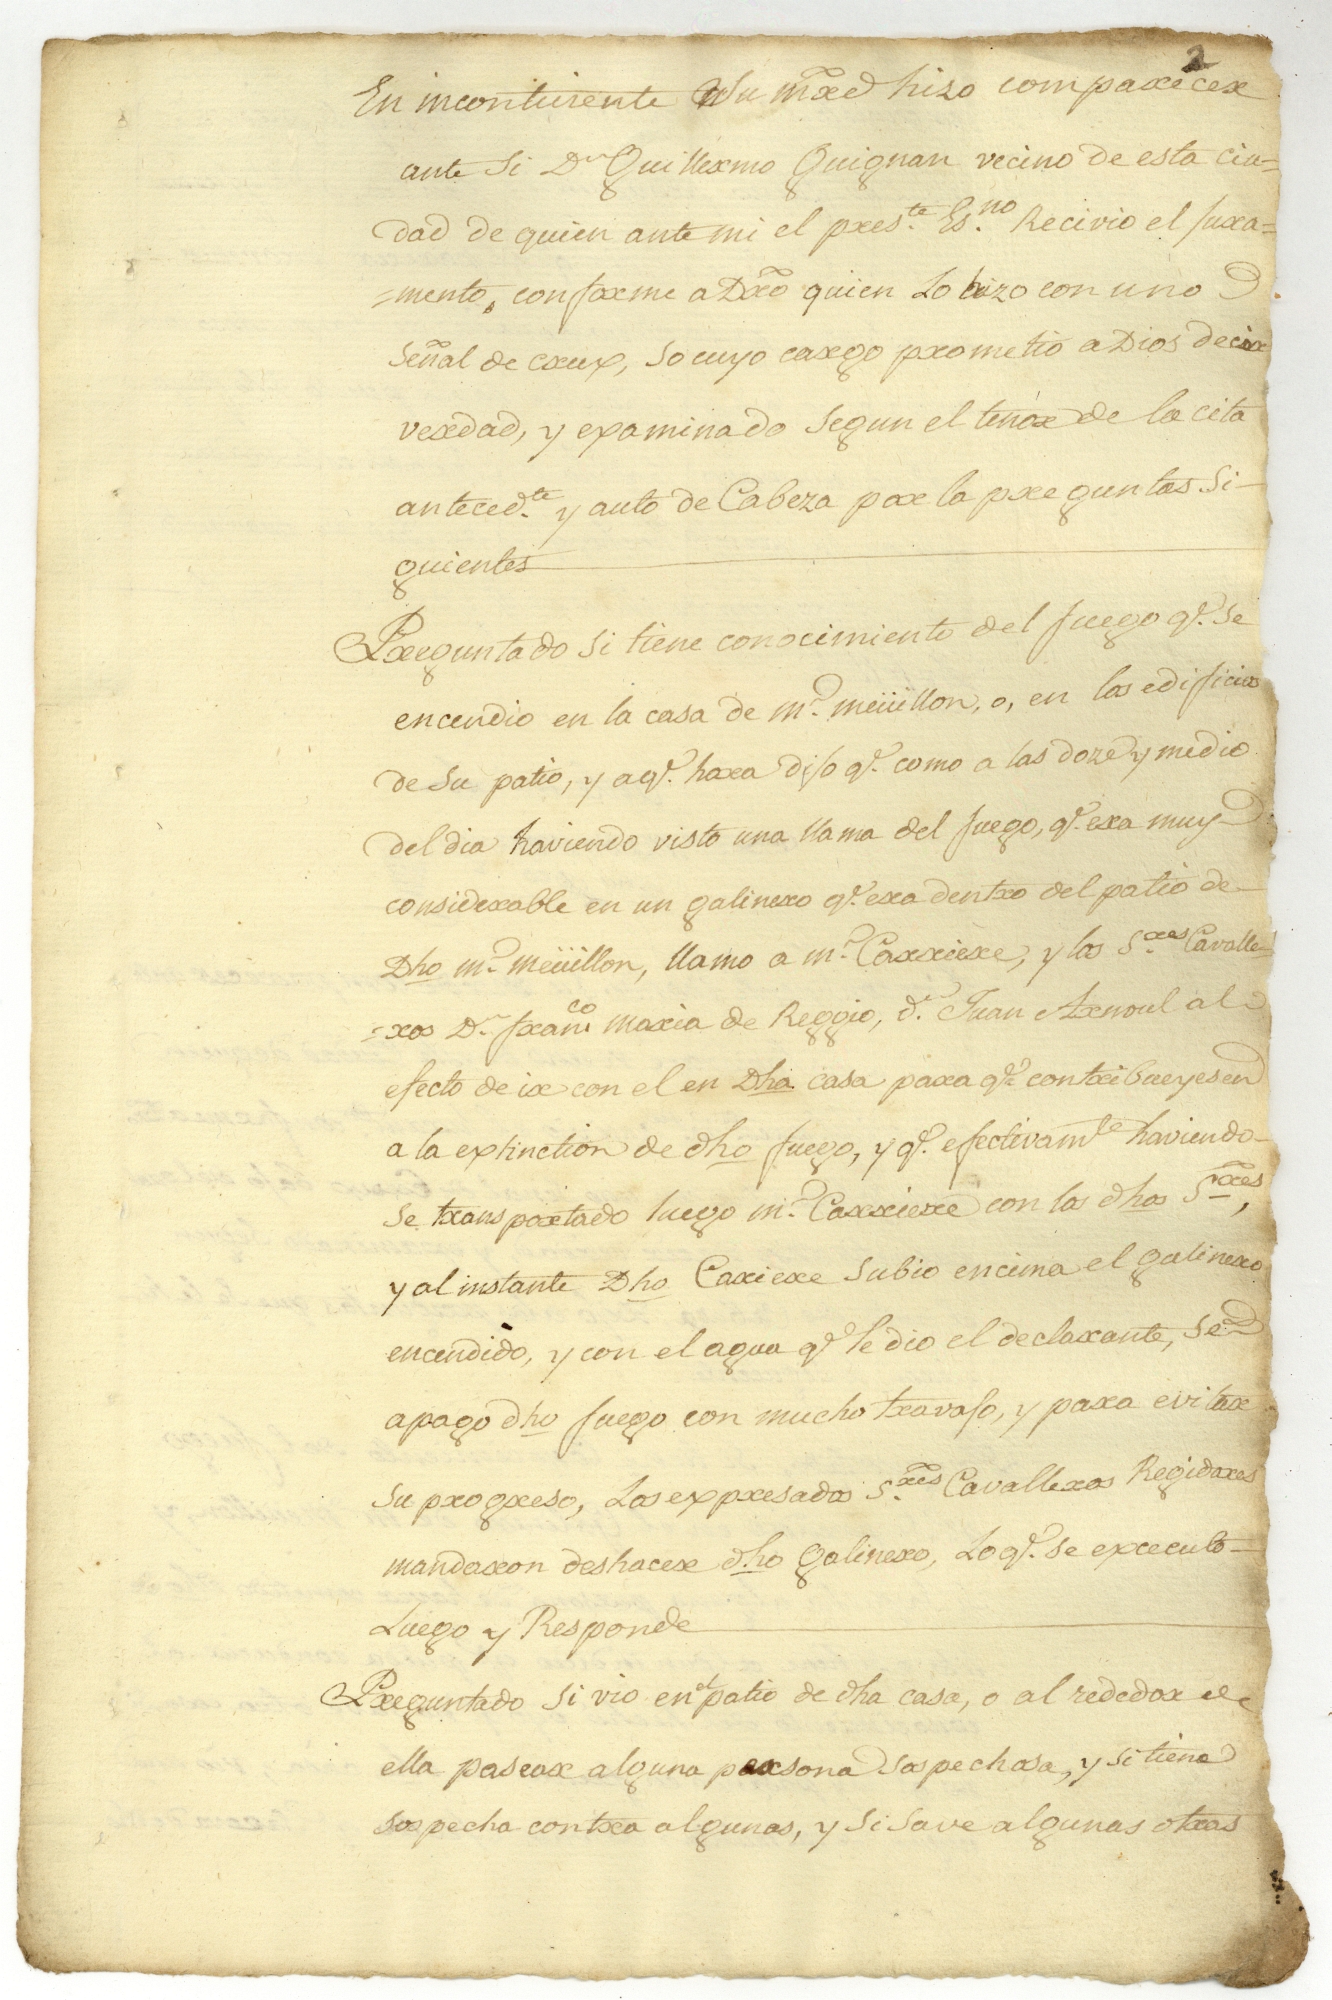 2
En incontinente Su mrd hizo comparecer
ante Si Dn Guillermo Guignan vecino de esta ciu-
dad de quien ante mi el preste Esno Recivio el jura=
=mento, conforme a Dro quien Lo hizo con uno
Señal de crux, so cuyo cargo prometio a Dios decir
verdad, y examinado Segun el tenor de la cita
antecedte y auto de Cabeza por la preguntas Si-
guientes
Preguntado si tiene conocimiento del fuego qe. se
encendio en la casa de mr. meüillon, o, en los edificios
de su patio, y a qe. hara dijo qe. como a las doze y medio
del dia haviendo visto una llama del fuego, qe. era muy
considerable en un galinero qe. era dentro del patio de
Dho mr. meüillon, llamo a mr. Carriere, y los Sres Cavalle-
=ros Dn franco maria de Reggio, dn. Juan Arnoul al
efecto de ir con el en Dha casa para qe. contribueyesen
a la extinction de dho fuego, y qe. efectivamte haviendo-
se transportado luego mr. Carriere con los dhos Sres,
y al instante Dho Cariere Subio encima el galinero
encendido, y con el agua qe le dio el declarante, Se
apago dho fuego con mucho travajo, y para evitar
su progreso, Los expresados Sres Cavalleros Regidores
mandaron deshacer dho galinero, Lo qe. se excecuto-
Luego y Responde
Preguntado Si vio enel patio de dha casa, o al rededor de
ella pasear alguna persona Sospechosa, y si tiene
sospecha contra algunas, y Si Save algunas otras